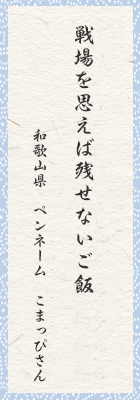 戦場を思えば残せないご飯
和歌山県 ペンネーム こまっぴさん